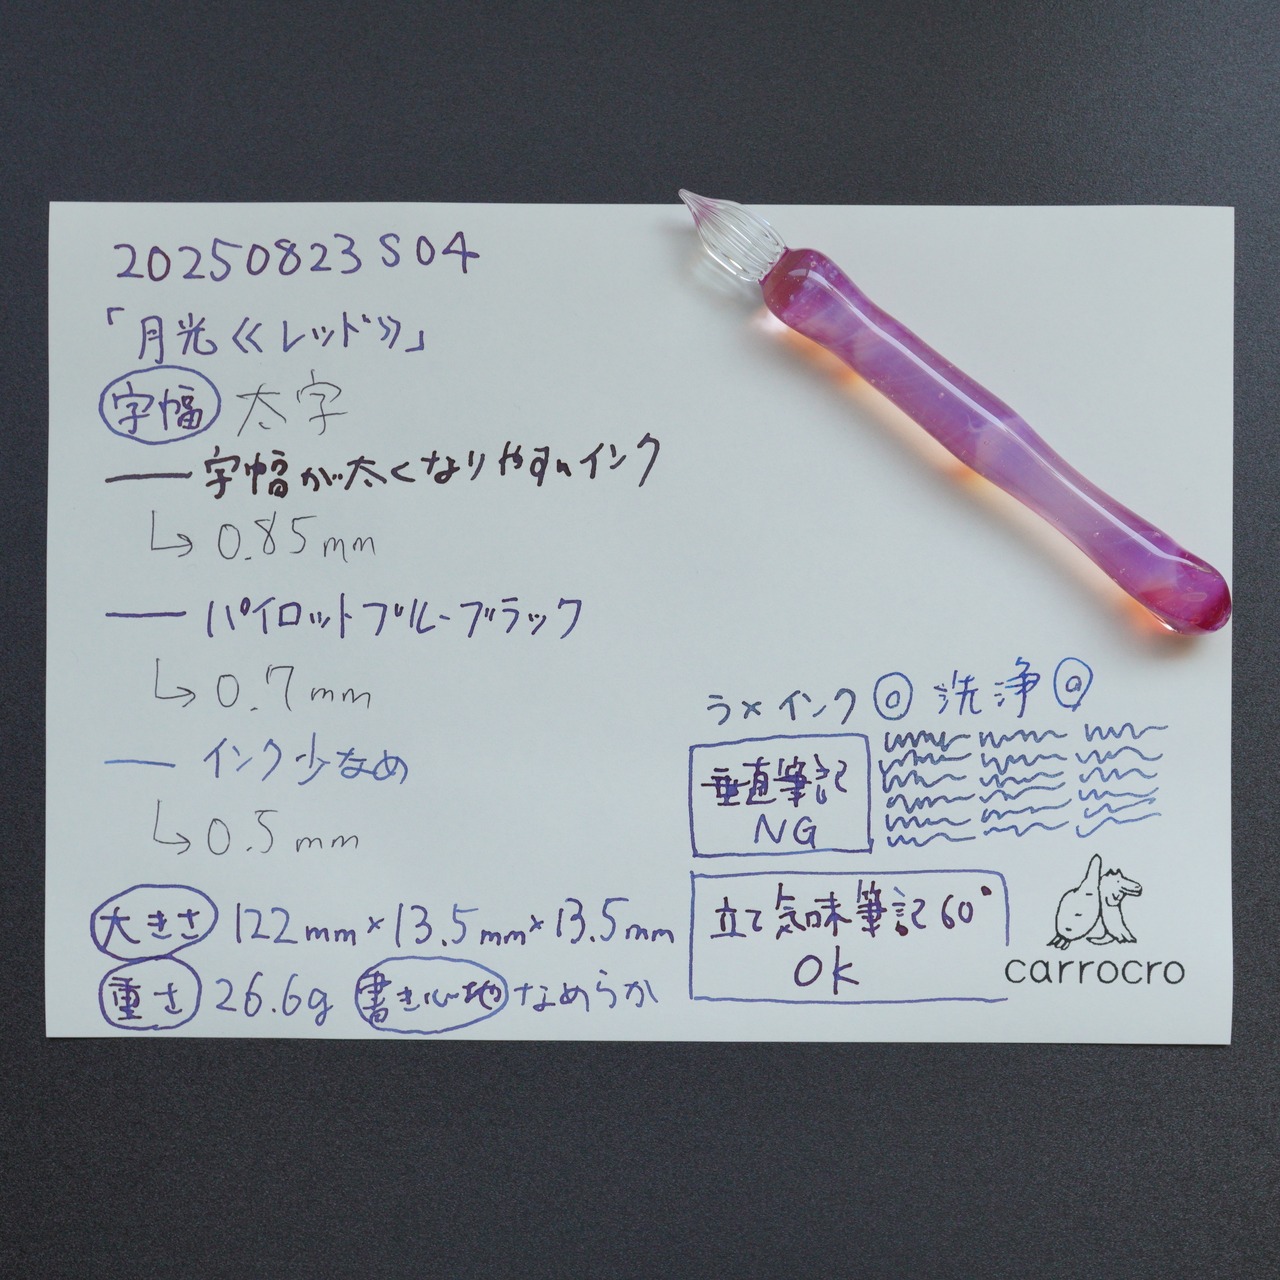 20250823S04
「月光≪レッド≫」
字幅 太字
字幅が太くなりやすいインク
↳ 0.85mm
パイロットブルーブラック
↳ 0.7mm
インク少なめ
↳ 0.5mm
大きさ 122mm×13.5mm×13.5mm
重さ 26.6g 書き心地 なめらか
ラメインク◎ 洗浄◎
垂直筆記
NG
立て気味筆記60°
OK
carrocro